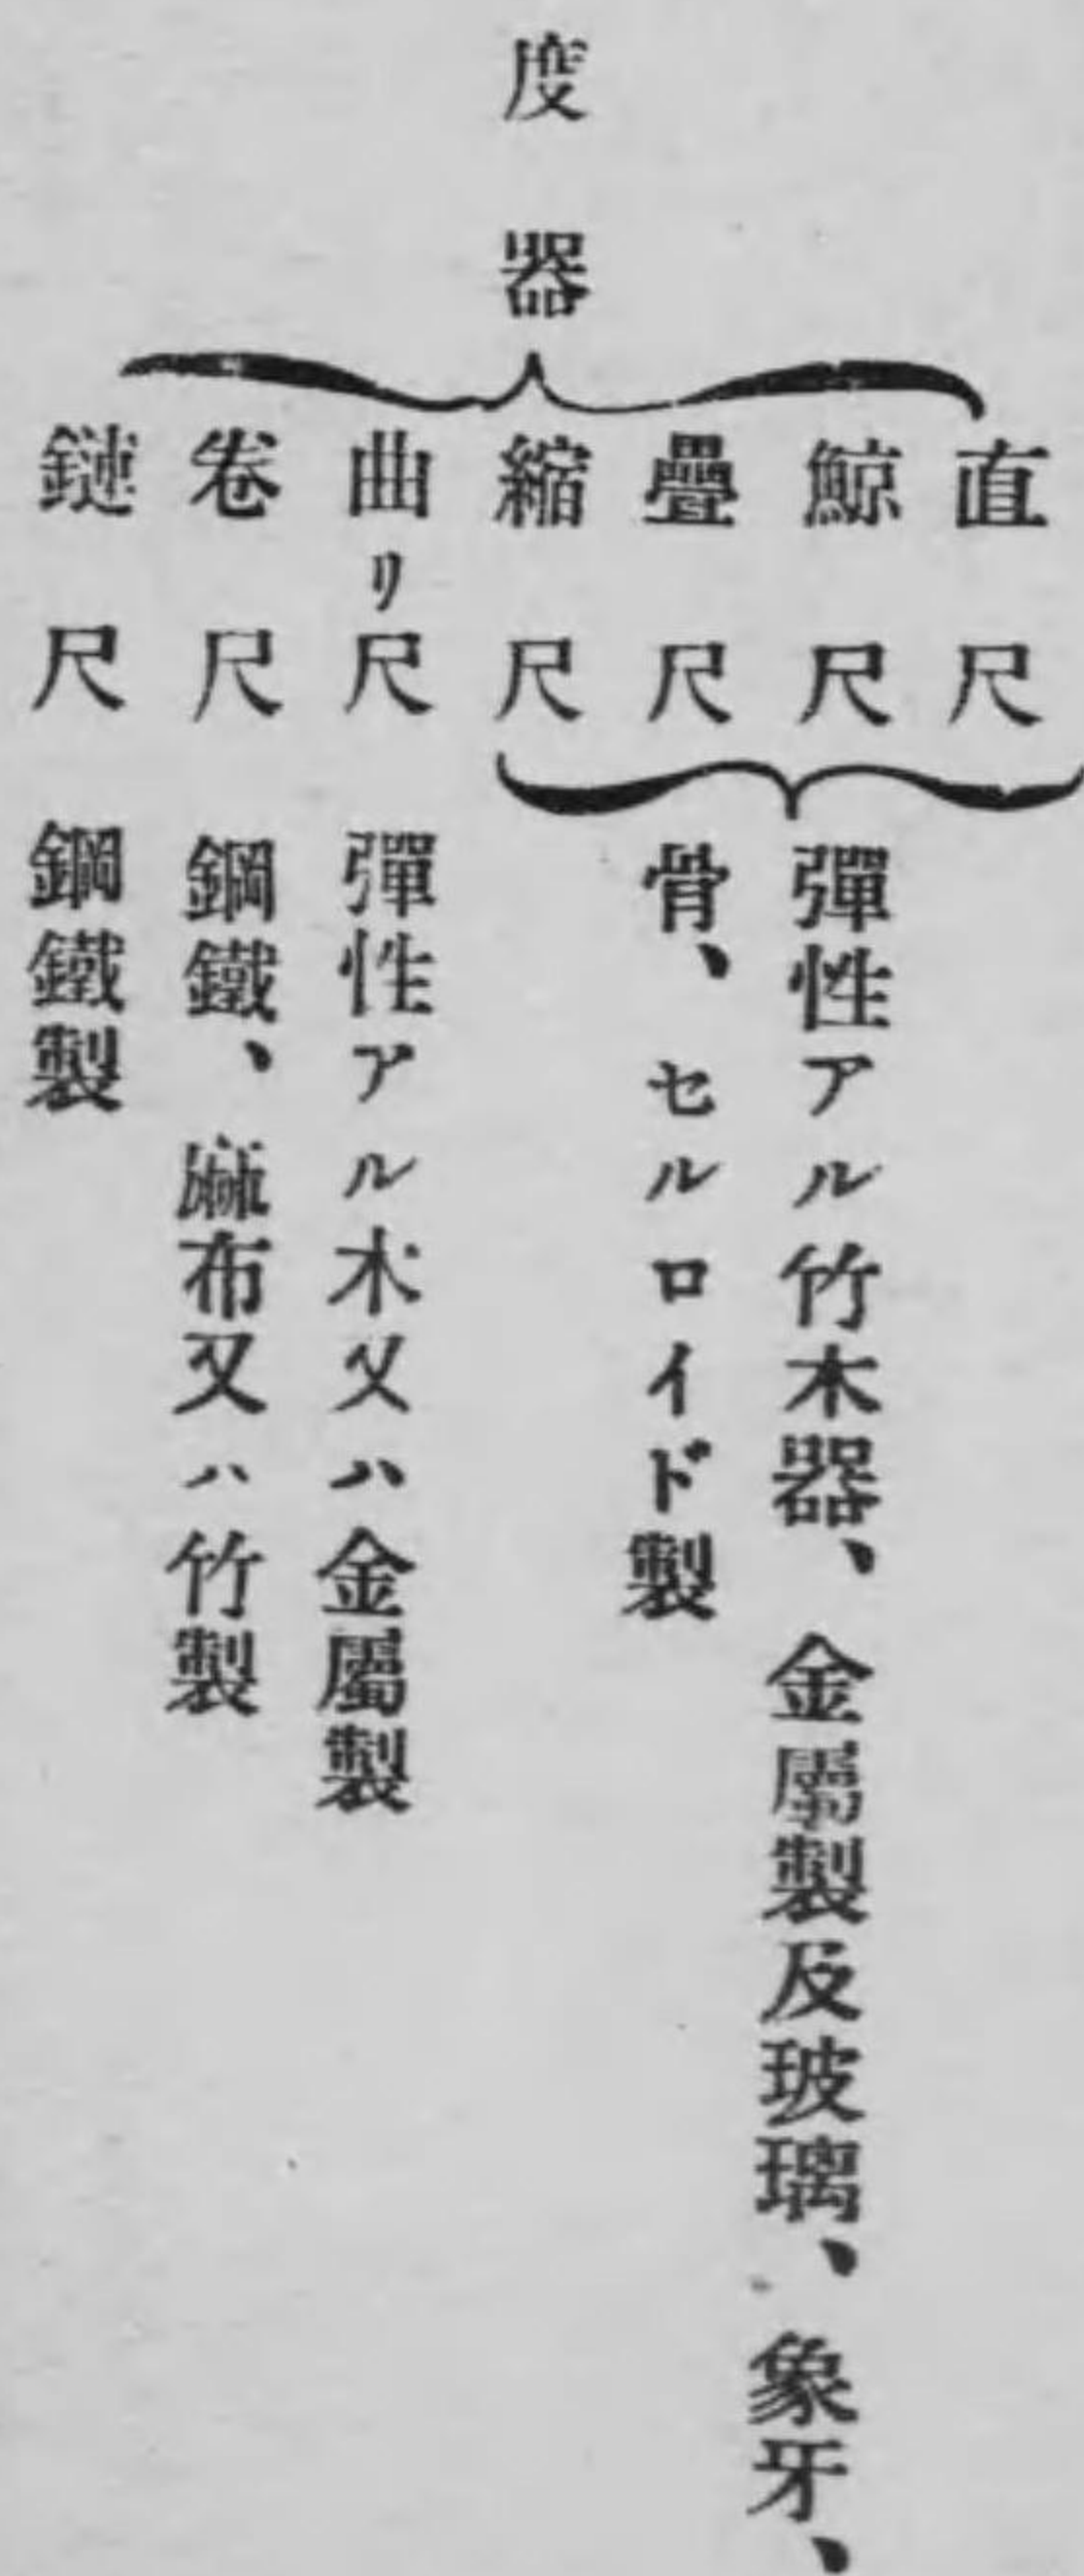 度器
直尺
鯨尺
疊尺
縮尺
彈性アル竹木器、金屬製及玻璃、象牙、
骨、セルロイド製
曲リ尺
彈性アル木又ハ金屬製
卷尺
鋼鐵、麻布又ハ竹製
鏈尺
鋼鐵製